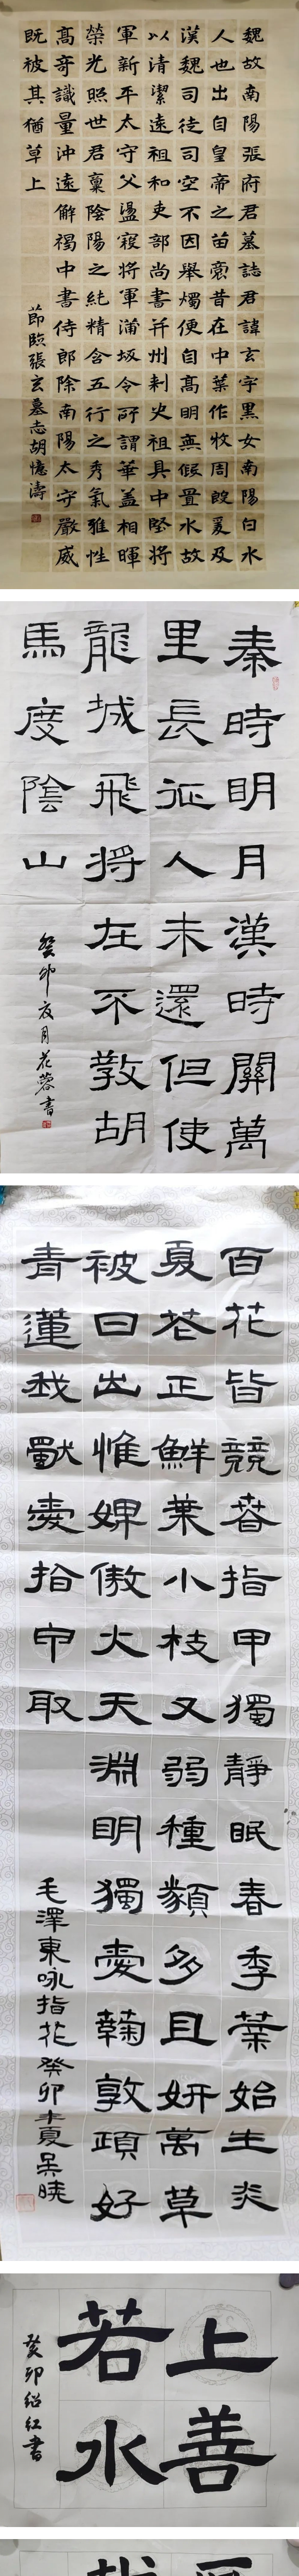 魏故南陽張府君墓誌君諱玄字黑女南陽白水
人也出自皇帝之苗裔昔在中葉作牧周殷爰及
漢魏司徒司空不因舉燭便自高明無假置水故
以清潔遠祖和吏部尚書并州刺史祖具中堅將
軍新平太守父盪寇將軍蒲坂令所謂華蓋相暉
榮光照世君稟陰陽之純精含五行之秀氣雅性
高奇識量沖遠解褐中書侍郎除南陽太守嚴威
既被其猶草上
節臨張玄墓志胡憶濤
秦時明月漢時關萬
里長征人未還但使
龍城飛將在不敎胡
馬度陰山
癸卯夏月花蓉書
百花皆競春指甲獨靜眠春季葉始生炎
夏花正鮮葉小枝又弱種類多且妍萬草
被日出惟婢傲火天淵明獨愛菊敦頤好
青蓮我獸愛指甲取
毛澤東咏指花癸卯年夏吳曉
上善
若水
癸卯紹紅書